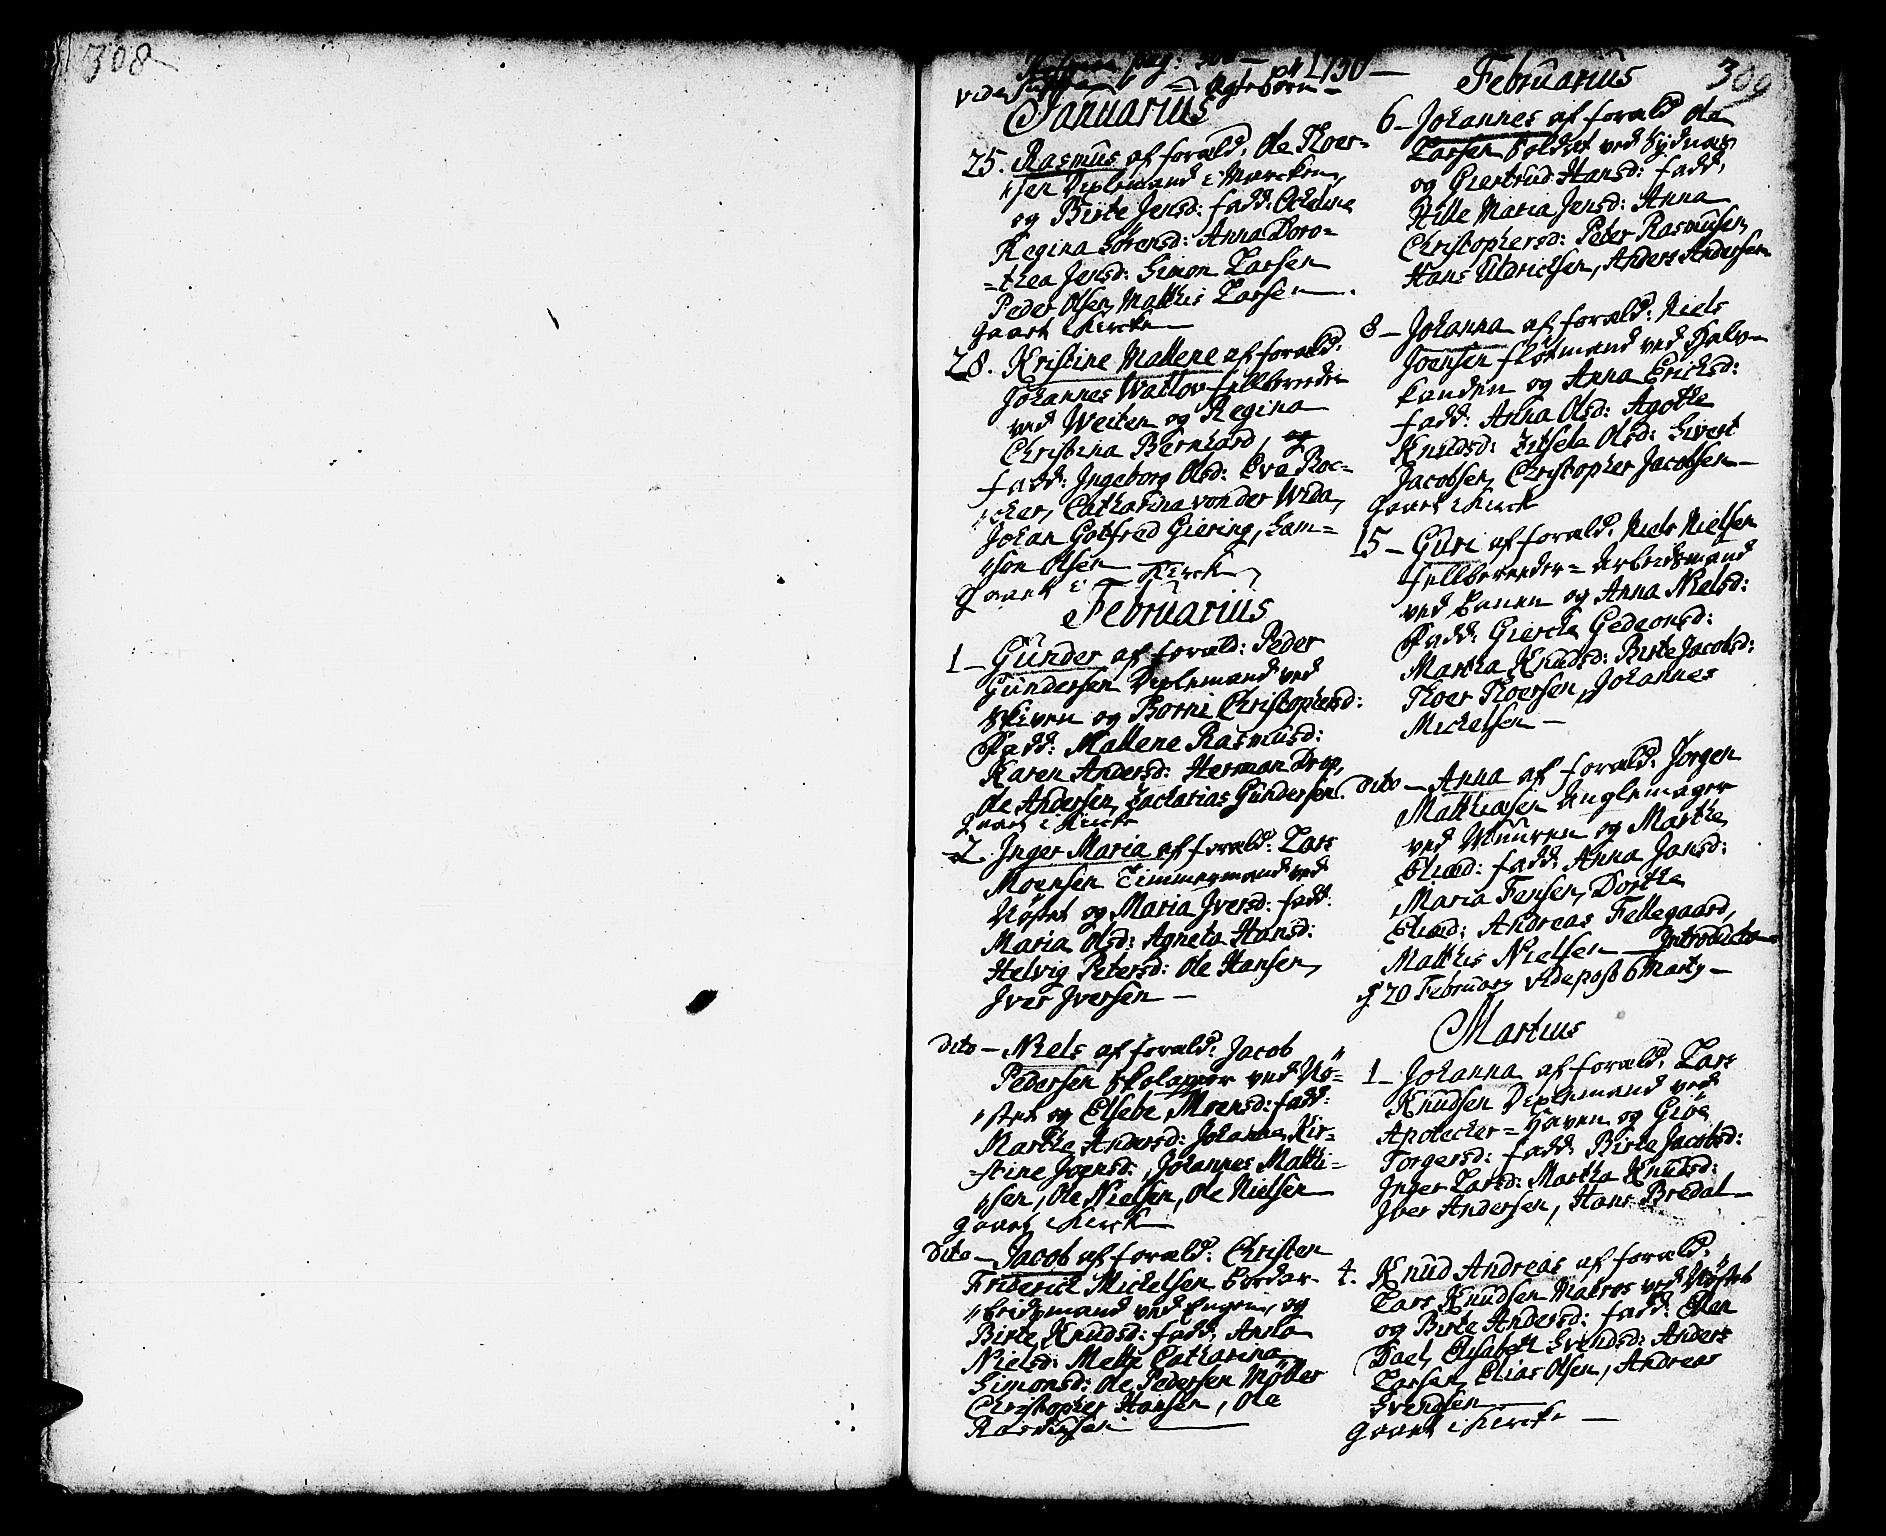 308
309
1730
Januarius
25. Rasmus af foræld. Ole Roer=
"sen Deplemand i Marcken,
og Birte Jensd: fadd:
Regina Sörensd: Anna Doro=
=thea Jensd: Simon Larsen
Peder Olsen, Matthis Larsen
gaaet i Kircke
28. Kristine Mallene af foræld:
Johannes Watlov fellbereder
ved Weiten og Regina
Christina Bernhard, og
fadd: Ingeborg Olsd: Eva Roc=
"cher, Catharina von der Wida,
Johan Gotfred Giering, Sam=
"son Olsen
gaaet i Kircke
Februarius
1 – Gunder af foræld: Peder
Gundersen Deplemand ved
Skiven og Borni Christophersd:
Fadd: Mallene Rasmusd:
Karen Andersd: Herman Drop,
Ole Andersen, Zacharias Gundersen.
gaaet i Kircke
2. Inger Maria af foræld: Lars
Moensen Timmermand ved
Nöstet og Maria Iversd: fadd:
Maria Olsd: Agneta Hansd:
Helvig Petersd: Ole Hansen,
Iver Iversen –
dito – Niels af foræld: Jacob
Pedersen Skolapper ved Nö=
"stet og Elsebe Moensd: fadd:
Marthe Andersd: Johanna Kir=
=stine Joensd: Johannes Matthi=
"sen, Ole Nielsen, Ole Nielsen
gaaet i Kircke
Dito – Jacob af foræld: Christen
Friderich Michelsen
ved Engen, og
Birte Knudsd: fadd: Anna
Nielsd: Mette Catharina
Simonsd: Ole Pedersen Möller
Christopher Hansen, Ole
Rasmusen
Februarius
6 – Johannes af foræld Ole
Larsen Soldat ved Sydnæs
og Giertrud Hansd: fadd:
Hille Maria Jensd: Anna
Christophersd: Peder Rasmusen,
Hans Uldricksen, Anders Andersen
8 – Johanna af foræld: Niels
Joensen flötmand ved Halv=
kanden og Anna Ericksd:
fadd: Anna Olsd: Agothe
Knudsd: Zitsela Olsd: Sivert
Jacobsen, Christopher Jacobsen –
gaaet i Kirck
15 – Guri af foræld: Niels Nielsen
fellbereeder= Arbeidsmand
ved og Anna Nielsd:
Fadd: Giercke Gedeonsd:
Martha Knudsd: Birte Jacobsd:
Roer Roersen, Johannes
Michelsen –
dito – Anna af foræld: Jörgen
Matthiasen Anglemager
ved Muuren og Marthe
Eliæd: fadd: Anna Jansd:
Maria Jensen, Dorthe
Eliæd: Andreas Fellegaard,
Matthis Nielsen – Introducta
d. 20 February vide post 6 Marty –
Martius
1 – Johanna af foræld: Lars
Knudsen Deplemand ved
Apotecker=Haven og Giöe
Torgersd: fadd: Birte Jacobsd:
Inger Larsd: Martha Knudsd:
Iver Andersen, Hans Bredal –
4. Knud Andreas af foræld:
Lars Knudsen Matros ved Nöstet
og Birte Andersd: fadd: Ellen
Dael, Elisabeth Svendsd: Anders
Larsen, Elias Olsen, Andreas
Svendsen
gaaet i Kircke –